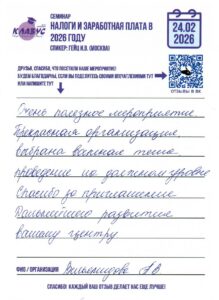 КЛАВУС
СЕМИНАР
НАЛОГИ И ЗАРАБОТНАЯ ПЛАТА В
2026 ГОДУ
СПИКЕР: ГЕЙЦ И.В. (МОСКВА)
24.02
2026
ДРУЗЬЯ, СПАСИБО, ЧТО ПОСЕТИЛИ НАШЕ МЕРОПРИЯТИЕ!
БУДЕМ БЛАГОДАРНЫ, ЕСЛИ ВЫ ПОДЕЛИТЕСЬ СВОИМИ ВПЕЧАТЛЕНИЯМИ ТУТ
ИЛИ НАПИШИТЕ ТУТ
ОТЗЫВЫ В ВК
Очень полезное мероприятие.
Прекрасная организация,
выбрана важная тема,
проведение на должном уровне
Спасибо за приглашение
Дальнейшего развития
вашему центру.
ФИО / ОРГАНИЗАЦИЯ
А.В.
СПАСИБО! КАЖДЫЙ ВАШ ОТЗЫВ ДЕЛАЕТ НАС ЕЩЕ ЛУЧШЕ!